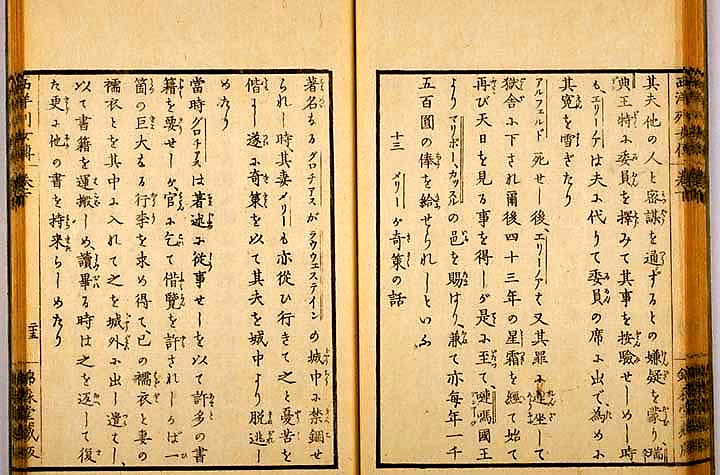 其夫他の人と密謀を通ずるとの嫌疑を蒙り、瑞
典王特に委員を擇みて其事を按驗せしめし時
も、エリーナは夫に代りて委員の席に出で、為めに
其寃を雪ぎたり
アルフェルド死せし後、エリーナも又其罪に連坐して
獄舎に下され爾後四十三年の星霜を經て始て
再び天日を見る事を得しが是に至て、嗹馬國王
より マリボー、カッスルの邑を賜はり、兼て亦毎年一千
五百圓の俸を給せられしといふ
十三 メリーが奇策の話
著名なるグロチアスがラウウエステインの城中に禁錮せ
られし時其妻メリーも亦從ひ行きて之と憂苦を
偕にし遂に奇策を以て其夫を城中より脱逃し
めたり
當時グロチアスは著述に從事せしを以て許多の書
籍を要せしが、官に乞て借覽を許されしかば一
箇の巨大なる行李を求め得て、己の襦衣と妻の
襦衣とを其中に入れて之を城外に出し遣はし、
以て書籍を運搬しめ、讀畢る時は之を返して復
た更に他の書を持来らしめたり
西洋列女傳 巻下
二十五
錦森堂藏版